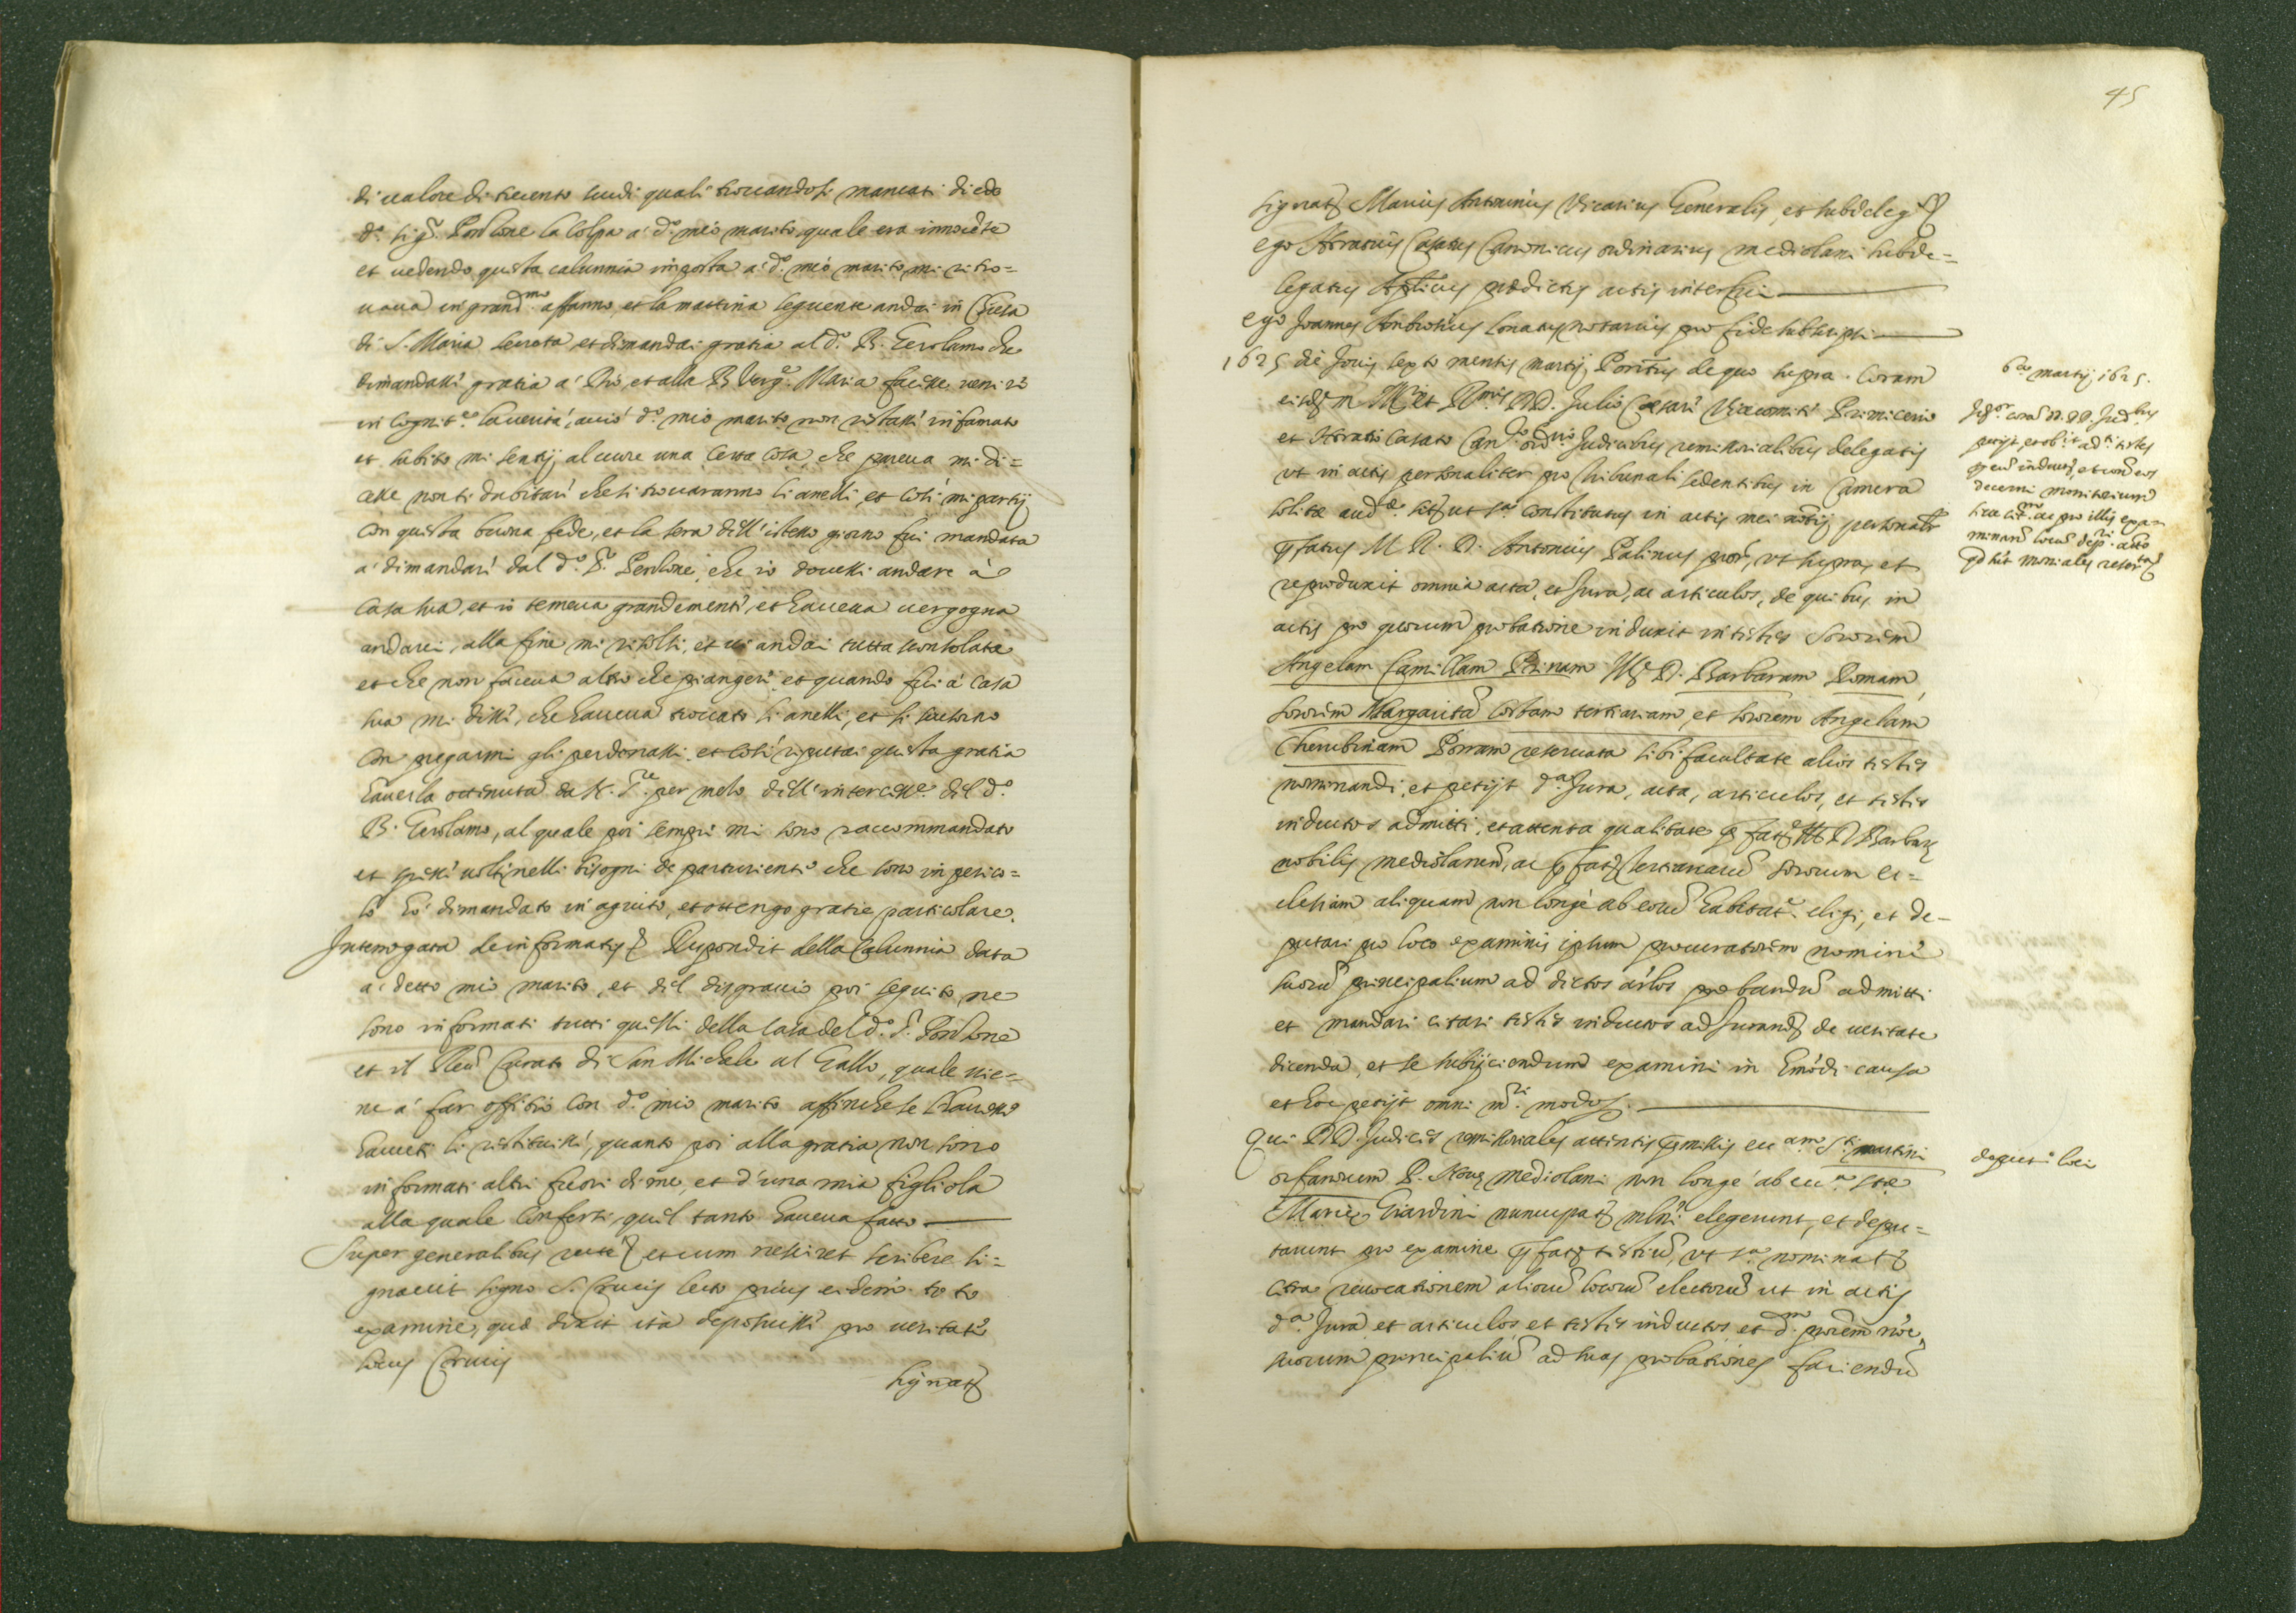 di ualore di trecento scudi quali trouandosi mancati diede
d.º Sig.r Perlone la colpa a' d.º mio marito quale era innocēte
et uedendo questa calunnia imposta a' d.º mio marito mi ritro=
uaua in grand.mo affanno, et la mattina seguente andai in Chiesa
di S. Maria Secreta et dimandai gratia al d.º B. Gerolamo che
dimandasse gratia a' Dio, et alla B. Verg.e Maria facesse uenire
in cognit.e la uerità, acciò d.º mio marito non restasse infamato
et subito mi sentij al cuore una certa cosa, che pareua mi di=
cesse non ti dubitare che si trouaranno li anelli, et così mi partij
con questa buona fede, et la sera dell'istesso giorno fui mandata
a' dimandare dal d.º S.r Perlone, che io douessi andare à
casa sua, et io temeua grandemente, et haueua uergogna
andarci, alla fine mi risolsi, et ui andai tutta sconsolata
et che non faceua altro che piangere, et quando fui a' casa
sua mi disse, che haueua trouato li anelli, et si scusorno
con pregarmi gli perdonassi, et così riputai questa gratia
hauerla ottenuta da N. S.re per mezo dell'intercess.e del d.º
B. Gerolamo, al quale poi sempre mi sono raccommandato
et spesse uolte nelli bisogni de parturiente che sono in perico=
lo hò dimandato in agiuto, et ottengo gratie particolare.
Interrogata de informatis Respondit della Calunnia data
a' detto mio marito, et del disgratio poi seguito ne
sono informati tutti quelli della casa del d.º S.r Perlone
et il Reu.do Curato di San Michele al Gallo, quale uie=
ne a' far offitio con d.º mio marito affinche se l'hauesse
hauuti li restituisse, quanto poi alla gratia non sono
informati altri fuori di me, et d'una mia figliola
alla quale conferti quel tanto haueua fatto
Super generalibus recte et cum nesciret scribere si=
gnauit signo S. Crucis lecto prius eidem toto
examine, quæ dixit ità deposuisse pro ueritate
locus Crucis
Signat
45
signat Marius Antoninus Vicarius Generalis, et subdeleg.
ego Horatius Casatus Canonicus ordinarius mediolani subde=
legatus Aplicus prædictis actis interfui
ego Joannes Ambrosius Lonatus notarius pro fide subscripsi
1625 die Jouis sexto mensis martij, Pontus de quo supra. Coram
eisdem Ill. et R.mis DD. Julio Cæsare Vicecomite Primicerio
et Horatio Casato Can.co ord.rio Judicibus remissorialibus delegatis
ut in actis personaliter pro tribunali sedentibus in Camera
solitæ aud.æ sit. ut s.a constitutus in actis mei notarij personalr
pfatus M. R. D. Antonius Palinus procr. ut supra, et
reproduxit omnia acta, et Jura, ac articulos, de quibus in
actis pro quorum probatione induxit in testes Sororem
Angelam Camillam Pinam Ill. D. Barbaram Romam,
Sororem Margaritā Corbam tertiariam, et sororem Angelam
Cherubinam Porram reseruata sibi facultate alios testes
nominandi, et petijt d.a Jura, acta, articulos, et testes
inductos admitti, et attenta qualitate pfatæ Ill. D. Barbaræ
nobilis mediolanen., ac pfatarum tertiariarū sororum ec=
clesiam aliquam non longè ab eorū habitat.e eligi, et de=
putari pro loco examinis ipsum procuratorem nomine
suorū principalium ad dictos arlos probandū admitti
et mandari citari testes inductos ad Jurand. de ueritate
dicenda, et se subijciendum examini in hmōdi causa
et hoc petijt omni m.ri modo.
Qui DD. Judices remissoriales attentis pmissis ec.am S.ti martini
orfanorum P. Nouæ mediolani non longè ab ec.a S.tæ
Mariæ Giardini nuncupat. mlni elegerunt, et depu=
tarunt pro examine pfat. testiū, ut s.a nominat.
citra reuocationem aliorū locorū electorū ut in actis
d.a Jura et articulos et testes inductos, et d.m procrem noe,
suorum principaliū ad suas probationes faciendū
6.to martij 1625.
decerni monitorium
minand. locus dep.ri
deput.o loci